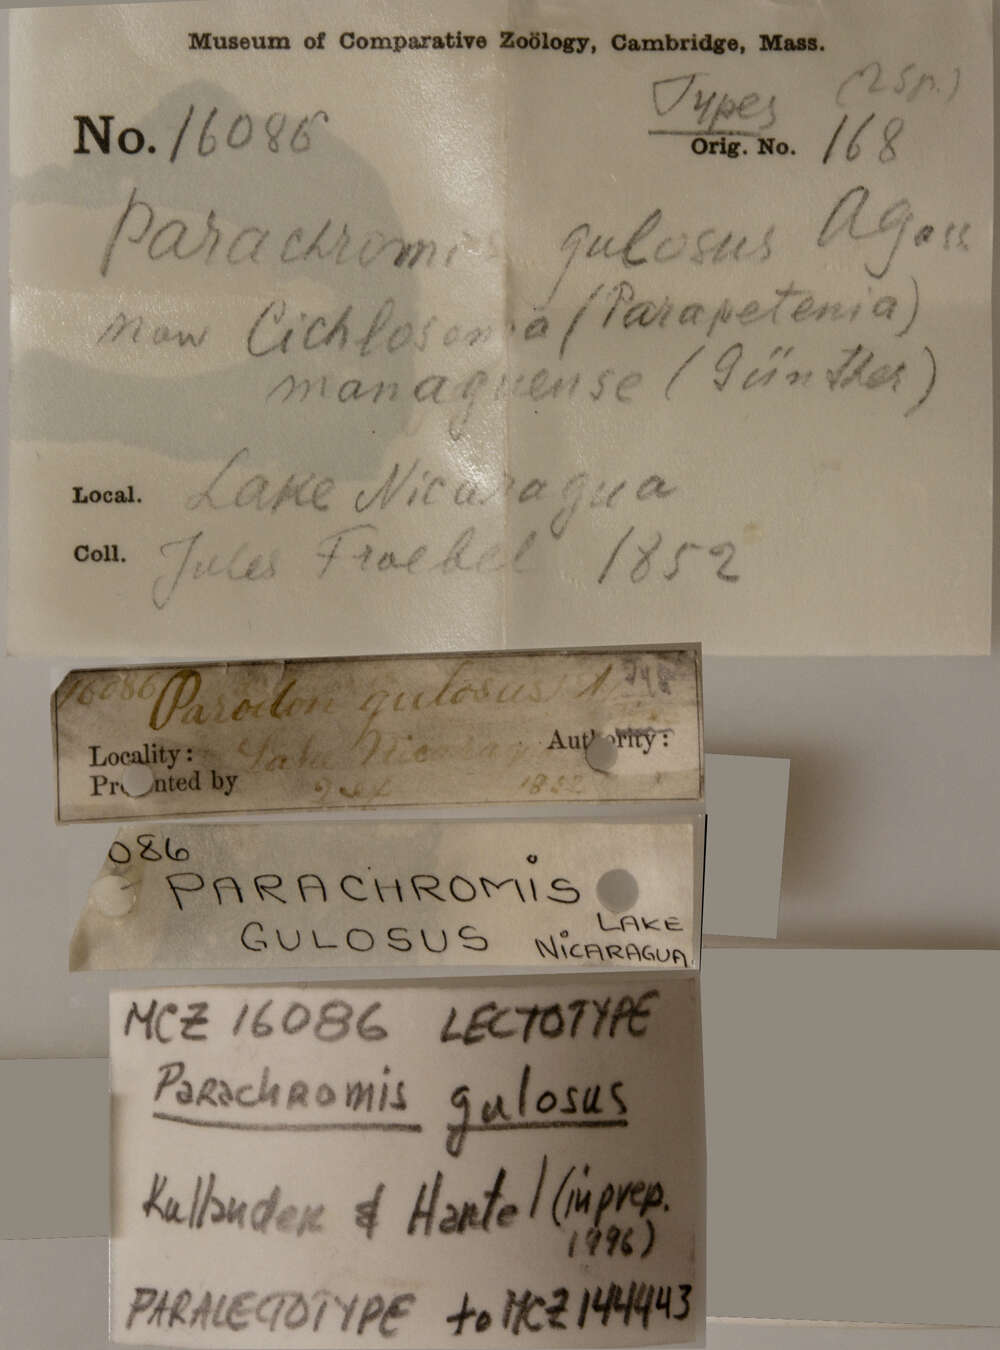 Museum of Comparative Zoölogy, Cambridge, Mass.
Types (2 sp.)
No. 16086
Orig. No. 168
Parachromis gulosus Agass
now Cichlosoma (Parapetenia)
managuense (Günther)
Local. Lake Nicaragua
Coll. Jules Froebel 1852
16086 Parodon gulosus
Authority:
Locality: Lake Nicaragua
Presented by 1852
086
PARACHROMIS
GULOSUS
LAKE
NICARAGUA
MCZ 16086 LECTOTYPE
Parachromis gulosus
Kullander & Hartel (in prep.
1996)
PARALECTOTYPE to MCZ 144443